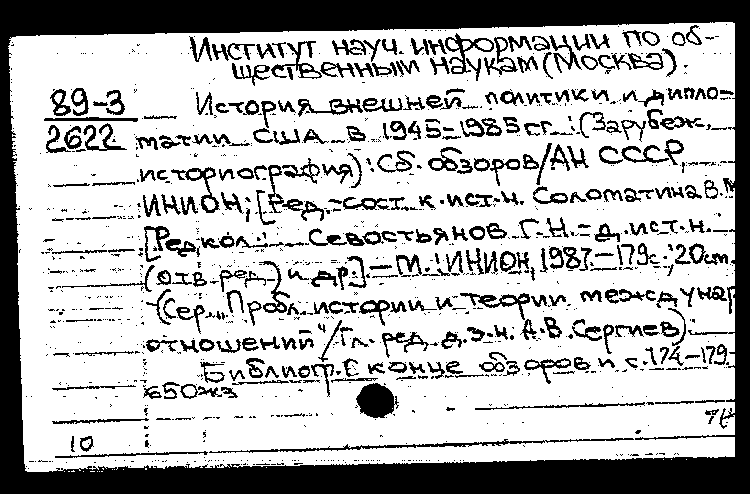 Институт науч. информации по об-
щественным наукам (Москва).
89-3 История внешней политики и дипло-
2622 матии США в 1945-1985 гг.: (Зарубеж.
историография): Сб. обзоров/АН СССР,
ИНИОН; [Ред.-сост. к.ист.н. Соломатина В.М
[Редкол.: Севостьянов Г.Н. - д.ист.н.
(отв. ред.) и др.] — М.: ИНИОН, 1987. — 179с.; 20см.
(Сер. „Пробл. истории и теории междунар
отношений"/Гл. ред. д.э.н. А.В. Сергиев).
Библиогр. в конце обзоров и с. 174-179
650экз
10